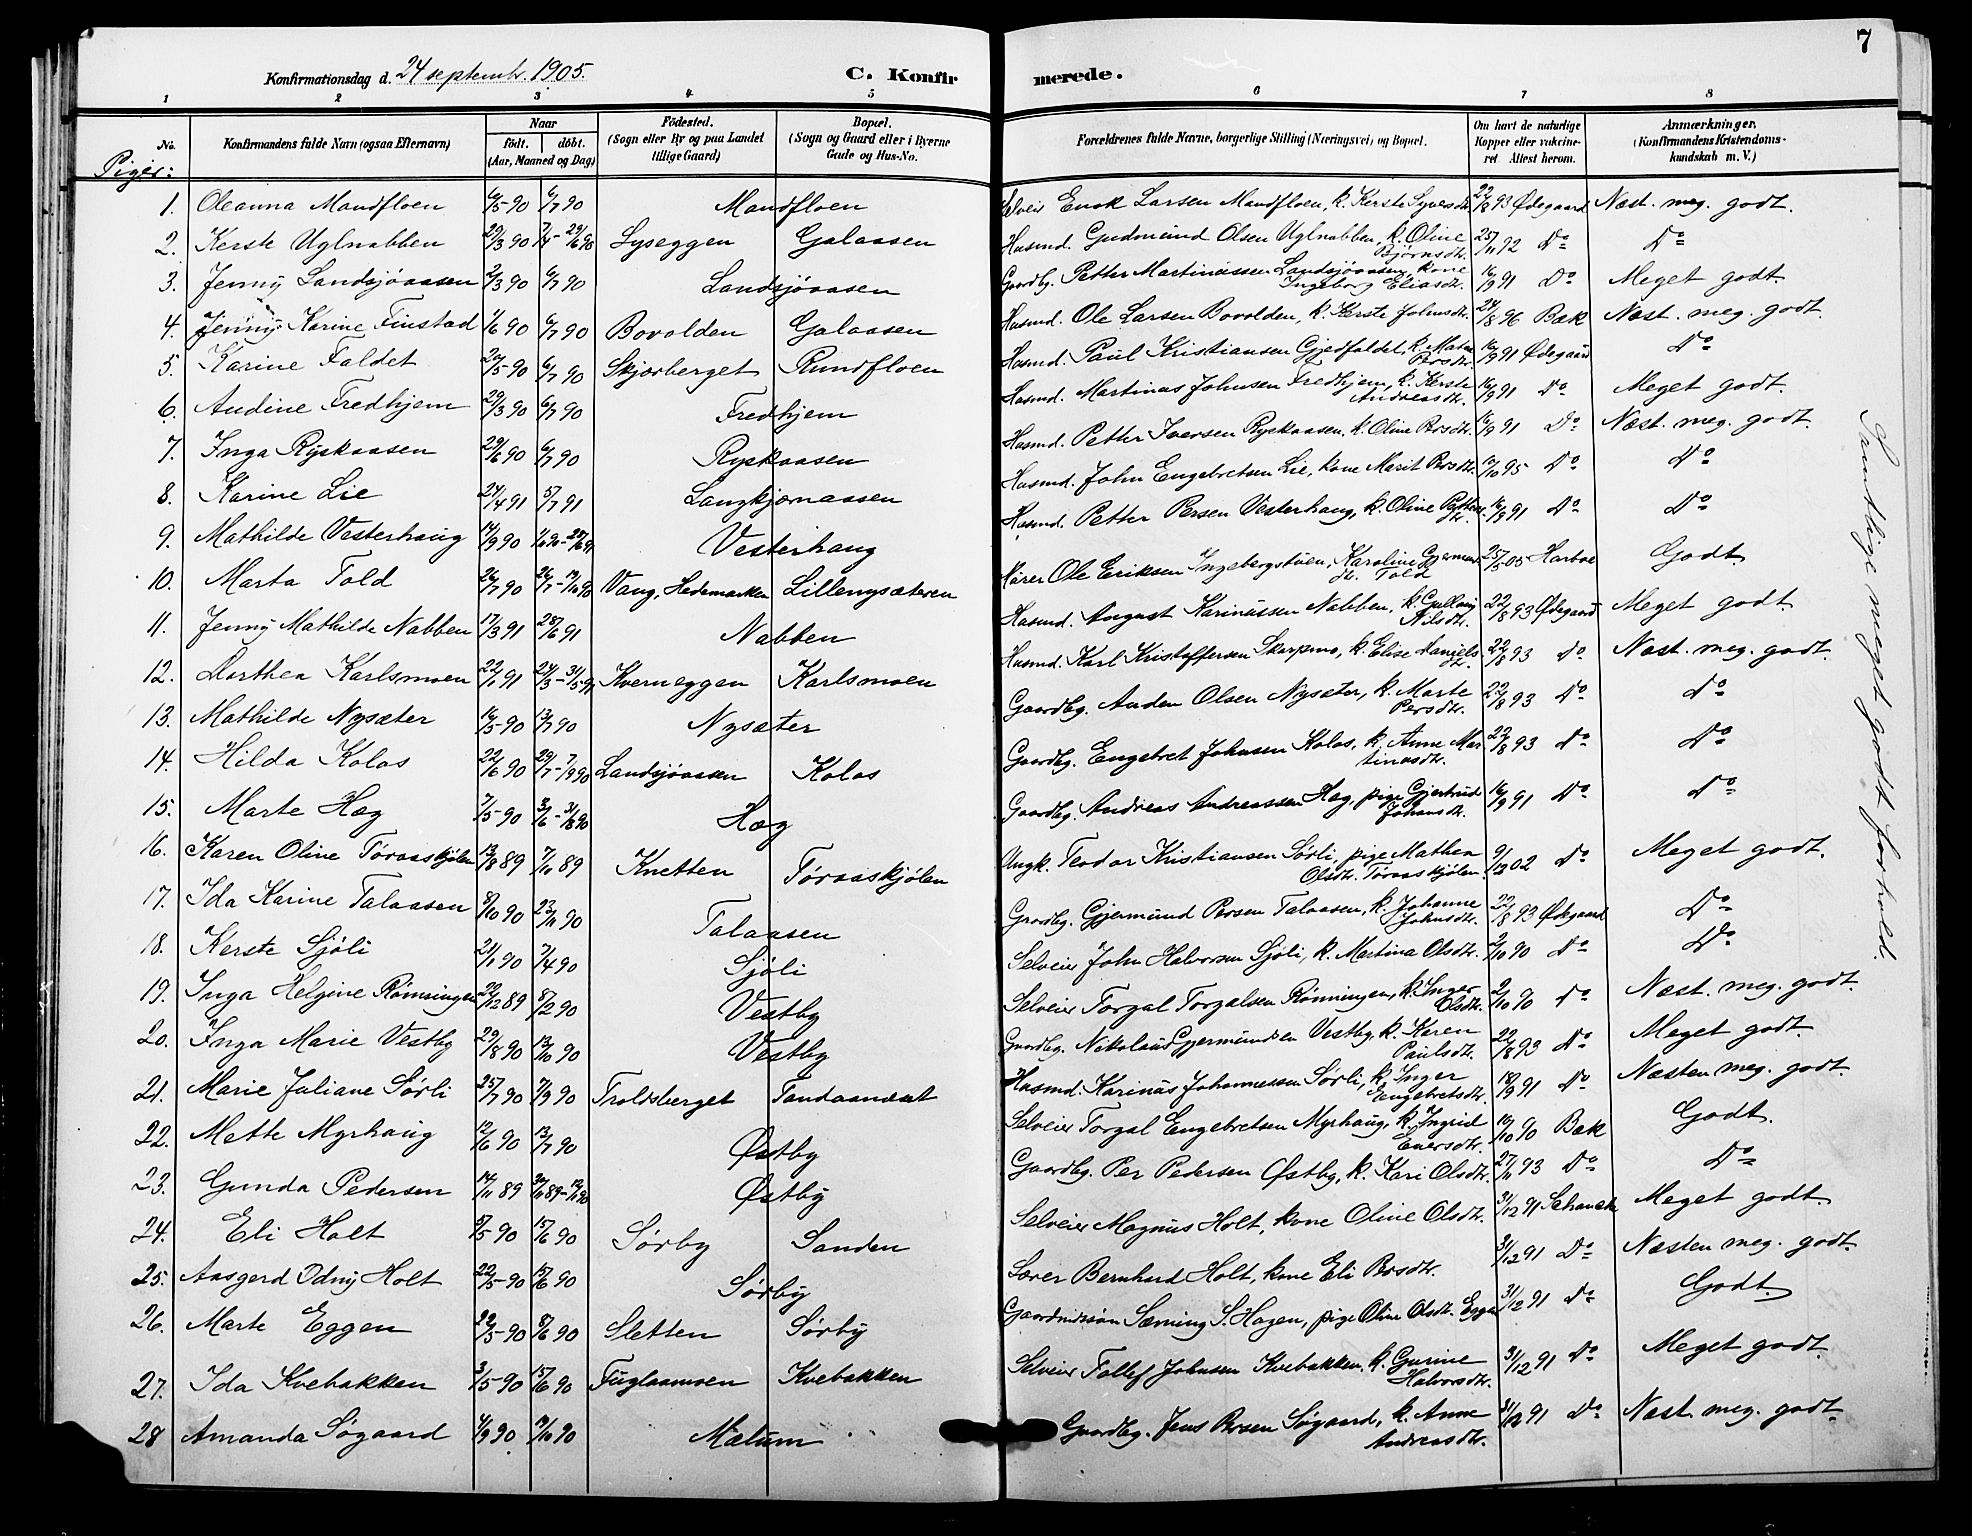 7
Konfirmationsdag d. 24 septembr. 1905. C. Konfirmerede.
1 2 3 4 5 6 7 8
No. Konfirmandens fulde Navn (ogsaa Efternavn) Naar født. døbt. (Aar, Maaned og Dag) Fødested. (Sogn eller By og paa Landet tillige Gaard) Bopæl. (Sogn og Gaard eller i Byerne Gade og Hus-No. Forældrenes fulde Navne, borgerlige Stilling (Næringsvei) og Bopæl. Om havt de naturlige Kopper eller vakcineret. Attest herom. Anmærkninger, (Konfirmandens Kristendomskundskab m. V.)
Piger:
1. Oleanna Mandfloen 6/5 90 6/7 90 Mandfloen Selveier Enok Larsen Mandfloen, k. Kerste Syversdtr. 22/8 93 Ødegaard Næst. meg. godt.
2. Kerste Uglnabben 29/3 90 7/4 - 29/6 90 Lyseggen Galaasen Husmd. Gudmund Olsen Uglnabben, k. Oline Bjørnsdtr. 25/11 92 Do Do
3. Jenny Landsjøaasen 2/3 90 6/7 90 Landsjøaasen Gaardbg. Petter Martinussen Landsjøaasen, kone Ingeborg Eliasdtr. 16/9 91 Do Meget godt.
4. Jenny Karine Finstad 1/6 90 6/7 90 Bovolden Galaasen Husmd. Ole Larsen Bovolden, k. Kerste Johnsdtr. 24/8 96 Bæk Næst. meg. godt.
5. Karine Faldet 20/5 90 6/7 90 Skjærberget Rundfloen Husmd. Paul Kristiansen Gjedfaldet, k. Mathea Persdtr. 16/9 91 Ødegaard Do
6. Andine Fredhjem 29/3 90 6/7 90 Fredhjem Husmd. Martinus Johnsen Fredhjem, k. Kerste Andreasdtr. 16/9 91 Do Meget godt.
7. Inga Ryskaasen 29/6 90 6/7 90 Ryskaasen Husmd. Petter Iversen Ryskaasen, k. Oline Persdtr. 16/9 91 Do Næst. meg. godt.
8. Karine Lie 24/4 91 5/7 91 Langkjærnaasen Husmd. John Engebretsen Lie, kone Marit Persdtr. 10/10 95 Do Do
9. Mathilde Vesterhaug 14/9 90 Vesterhaug Husmd. Petter Persen Vesterhaug, k. Oline Pettersdtr. 16/9 91 Do Do
10. Marta Told 26/7 90 26/7 - 19/10 90 Vang, Hedemarken Lillenysæteren Kårer Ole Eriksen Ingebergstuen, Karoline Gjermundsdtr. Told 25/5 05 Harboe Godt.
11. Jenny Mathilde Nabben 17/3 91 28/6 91 Nabben Husmd. August Karinussen Nabben, k. Gullaug Nilsdtr. 22/8 93 Ødegaard Meget godt.
12. Dorthea Karlsmoen 22/1 91 24/3 - 31/5 91 Kverneggen Karlsmoen Husmd. Karl Kristoffersen Skarpmo, k. Elise Danielsdtr. 22/8 93 Do Næst. meg. godt.
13. Mathilde Nysæter 16/5 90 13/7 90 Nysæter Gaardbg. Anden Olsen Nysæter, k. Marte Persdtr. 22/8 93 Do Do
14. Hilda Kolos 22/6 90 29/7 - 7/9 90 Landsjøaasen Kolos Gaardbg. Engebret Johnsen Kolos, k. Anne Martinusdtr. 22/8 93 Do Do
15. Marte Hæg 7/5 90 3/6 - 31/8 90 Hæg Gaardbg. Andreas Andreassen Hæg, pige Gjertrud Johansdtr. 16/9 91 Do Do
16. Karen Oline Tøraaskjølen 13/8 89 7/10 89 Knetten Tøraaskjølen Ungk. Teodor Kristiansen Sørli, pige Mathea Olsdtr. Tøraaskjølen 9/12 02 Do Meget godt.
17. Ida Karine Talaasen 8/10 90 23/11 90 Talaasen Gaardbg. Gjermund Persen Talaasen, k. Johanne Johnsdtr. 22/8 93 Ødegaard Do
18. Kerste Sjøli 21/1 90 7/4 90 Sjøli Selveier John Halvorsen Sjøli, k. Martina Olsdtr. 2/10 90 Do Do
19. Inga Helgine Rønningen 22/12 89 8/2 90 Vestby Selveier Torgal Torgalsen Rønningen, k. Inger Olsdtr. 2/10 90 Do Næst. meg. godt.
20. Inga Marie Vestby 29/8 90 13/10 90 Vestby Gaardbg. Nikolaus Gjermundsen Vestby, k. Karen Paulsdtr. 22/8 93 Do Meget godt.
21. Marie Juliane Sørli 25/7 90 7/9 90 Troldsberget Tandaanæset Husmd. Karinus Johannessen Sørli, k. Inger Engebretsdtr. 18/9 91 Do Næsten meg. godt.
22. Mette Myrhaug 12/6 90 13/7 90 Østby Selveier Torgal Engebretsen Myrhaug, k. Ingrid Einersdtr. 19/10 90 Bæk Godt.
23. Gunda Pedersen 14/11 89 Østby Gaardbg. Per Pedersen Østby, k. Kari Olsdtr. 27/11 93 Do Do
24. Eli Holt 5/5 90 15/6 90 Sørby Sanden Selveier Magnus Holt, kone Oline Olsdtr. 31/12 91 Schanck Meget godt.
25. Aasgerd Odny Holt 22/5 90 15/6 90 Sørby Lærer Bernhard Holt, kone Eli Persdtr. 31/12 91 Do Næsten meg. godt.
26. Marte Eggen 22/5 90 8/6 90 Sletten Sørby Gaardmdssøn Sæming S. Hagen, pige Oline Olsdtr. Eggen 31/12 91 Do Godt.
27. Ida Kvebakken 3/5 90 15/6 90 Fuglaamoen Kvebakken Selveier Tollef Johnsen Kvebakken, k. Gurine Halvorsdtr. 31/12 91 Do Meget godt.
28 Amanda Søgaard 4/9 90 19/10 90 Mælum Gaardbg. Jens Persen Søgaard, k. Anne Andreasdtr. 31/12 91 Do Næst. meg. godt.
Samtlige meget godt forhold.